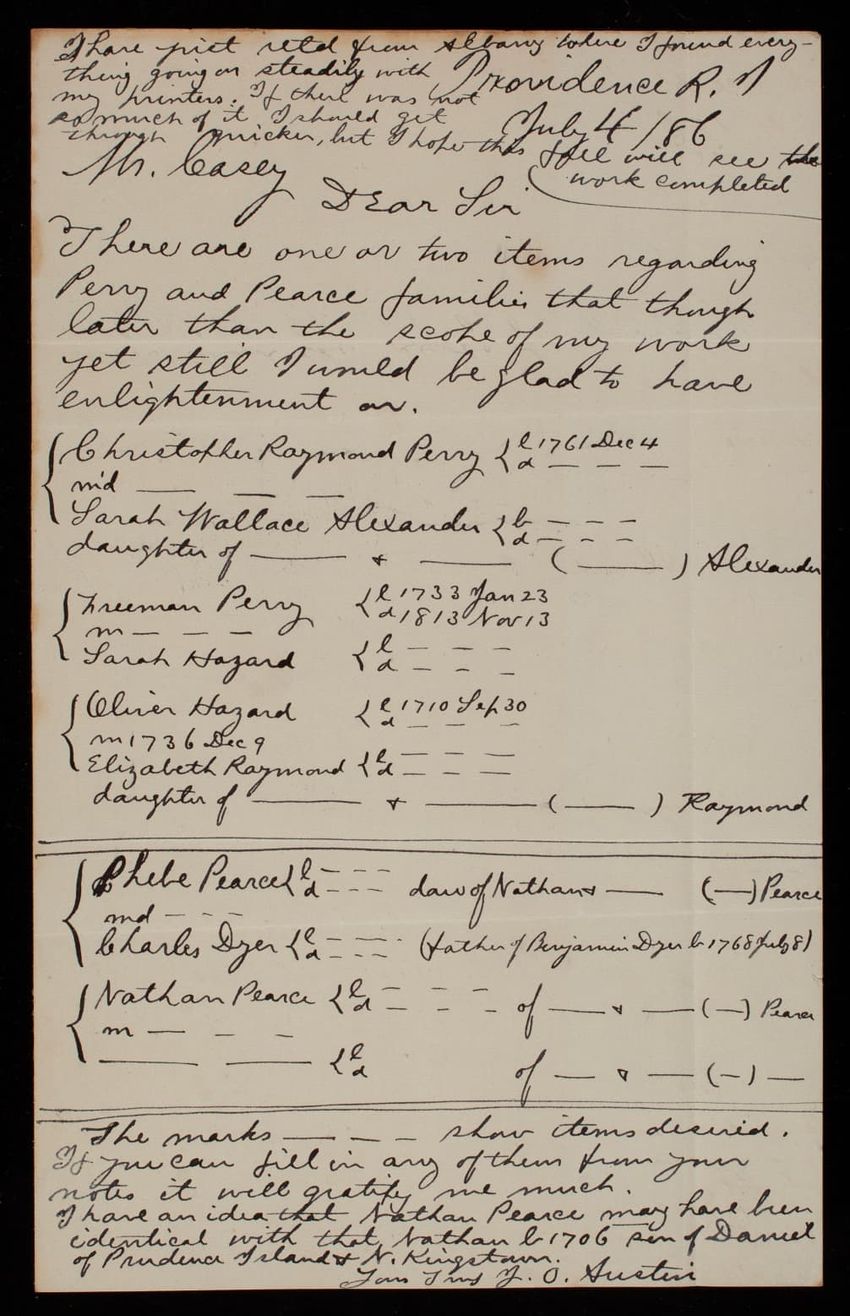 I have just retd from Albany where I found every-
thing going on steadily with
my printers. If there was not
so much of it I should get
through quicker, but I hope this
fall will see the
work completed
Providence R. I
July 4 / 86
Mr. Casey
Dear Sir
There are one or two items regarding
Perry and Pearce families that though
later than the scope of my work
yet still I would be glad to have
enlightenment on.
Christopher Raymond Perry { b 1761 Dec 4
d — — —
md — — —
Sarah Wallace Alexander { b — — —
d — — —
daughter of —— + —— ( —— ) Alexander
Freeman Perry { b 1733 Jan 23
d 1813 Nov 13
m — — —
Sarah Hazard { b — — —
d — — —
Oliver Hazard { b 1710 Sep 30
d — — —
m 1736 Dec 9
Elizabeth Raymond { b — — —
d — — —
daughter of —— + —— ( —— ) Raymond
Phebe Pearce { b — — — dau of Nathan + —— ( — ) Pearce
d — — —
md — — —
Charles Dyer { b — — — (father of Benjamin Dyer b 1768 July 8)
d — — —
Nathan Pearce { b — — — of —— + —— ( — ) Pearce
d — — —
m — — —
—— —— { b
d of — + — ( — ) —
The marks —— — — show items desired.
If you can fill in any of them from your
notes it will gratify me much.
I have an idea that Nathan Pearce may have been
identical with that Nathan b 1706 son of Daniel
of Prudence Island & N. Kingstown.
Yours Truly J. O. Austin